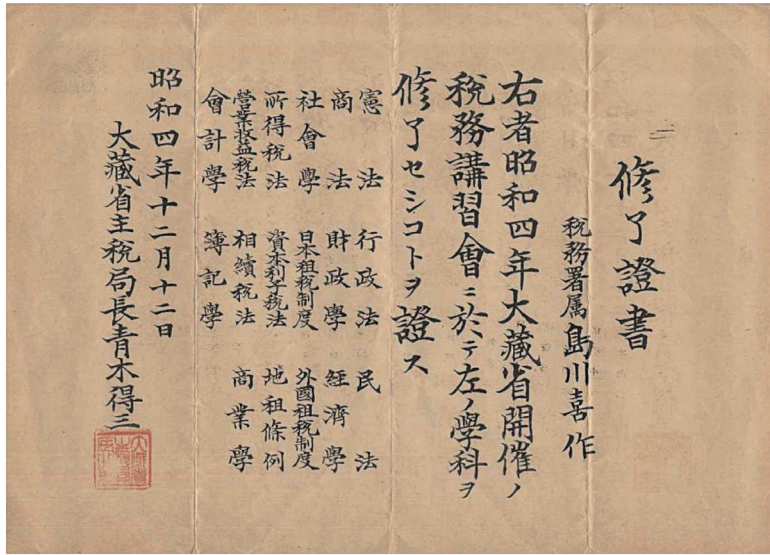 修了證書
税務署属 島川喜作
右者昭和四年大藏省開催ノ
税務講習會ニ於テ左ノ學科ヲ
修了セシコトヲ證ス
憲法 行政法 民法
商法 財政學 經濟學
社會學 日本租税制度 外國租税制度
所得税法 資本利子税法 地租條例
營業收益税法 相續税法 商業學
會計學 簿記學
昭和四年十二月十二日
大藏省主税局長青木得三